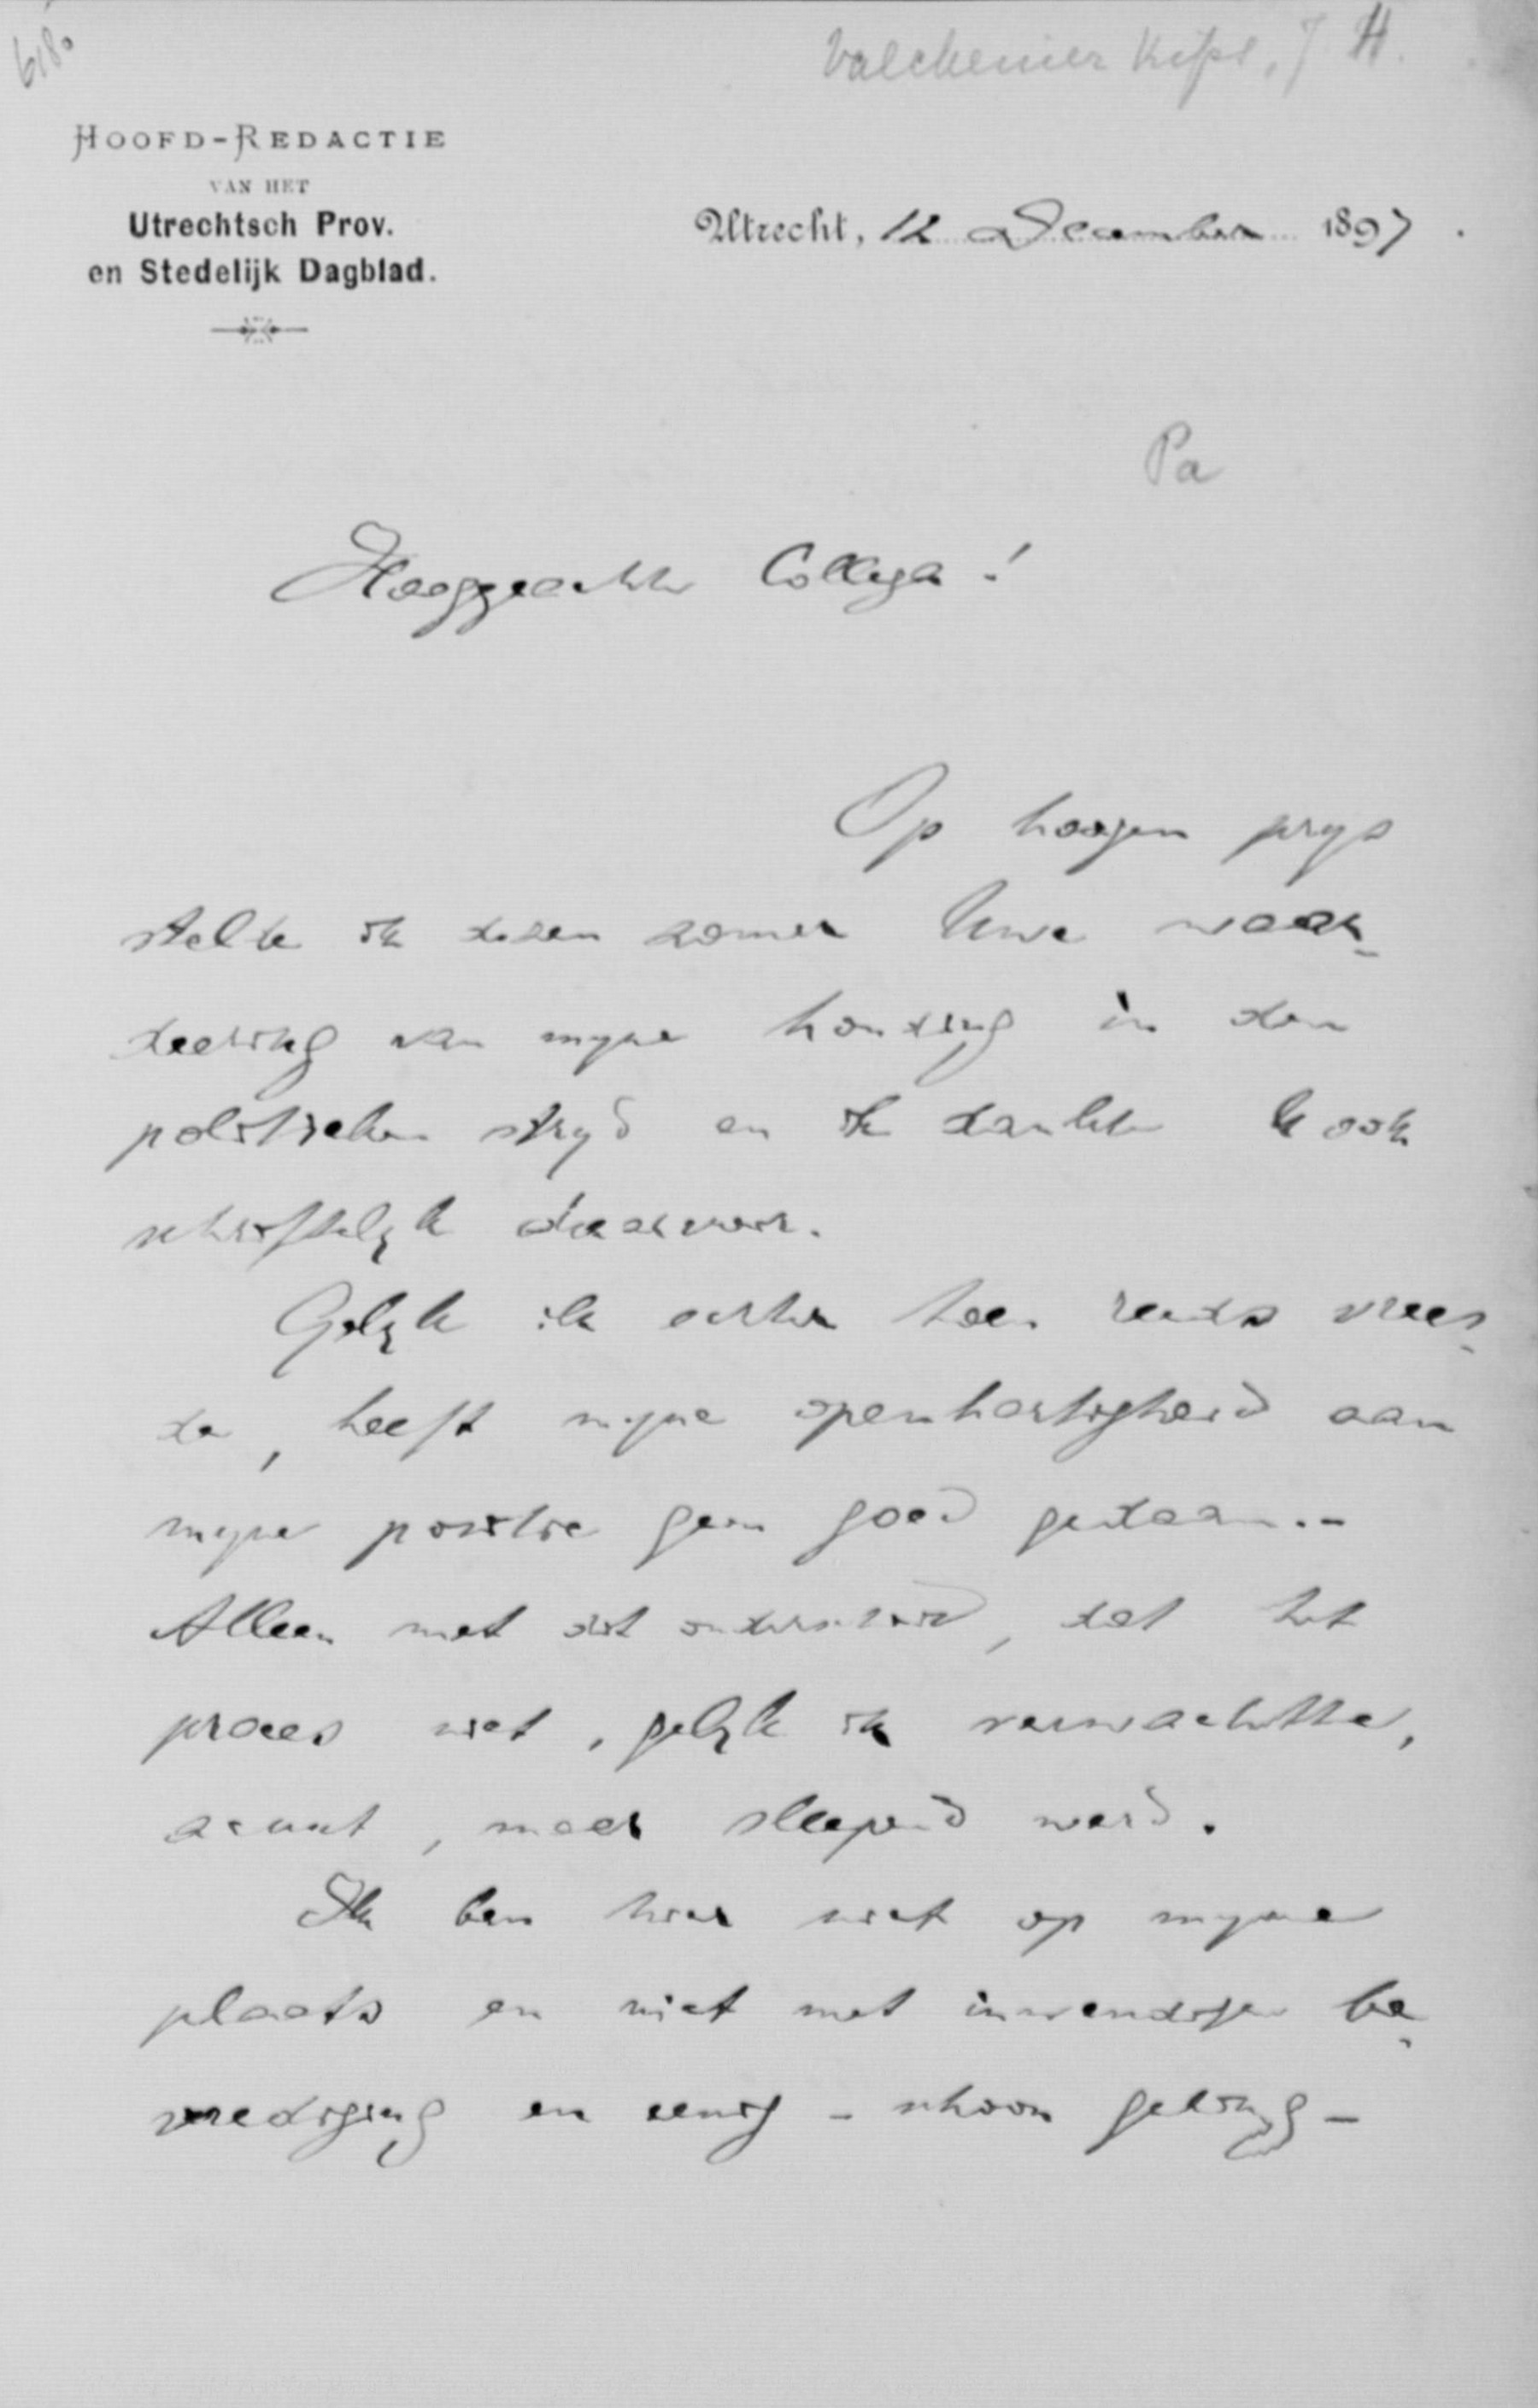 6180
Valckenier Kips, J H.
HOOFD-REDACTIE
VAN HET
Utrechtsch Prov.
en Stedelijk Dagblad.
Utrecht, 12 December 1897.
Pa
Hooggeachte Collega!
Op hoogen prys
stelde ik dezen zomer Uwe waar-
deering van myne houding in den
politieken stryd en ik dankte U ook
schriftelyk daarvoor.
Gelyk ik echter toen reeds vrees-
de, heeft myne openhartigheid aan
myne positie geen goed gedaan.-
Alleen met dit onderscheid, dat het
proces niet, gelyk ik verwachtte,
acuut, maar sleepend werd.
Ik ben hier niet op myne
plaats en niet met inwendige be-
vrediging en eenig - schoon gering -